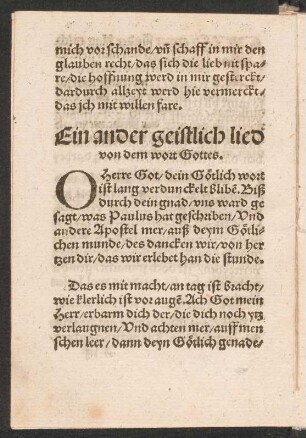 mich vor schande/ vñ schaff in mir den
glauben recht/ das sich die lieb nit spa=
re/ die hoffnung werd in mir gesterckt/
dardurch allzeyt werd hie vermerckt/
das ich mit willen fare.
Ein ander geistlich lied
von dem wort Gottes.
O Herre Got/ dein Götlich wort
ist lang verdunckelt blibē. Biß
durch dein gnad/ vns ward ge
sagt/ was Paulus hat geschriben/ Vnd
andere Apostel mer/ auß deym Götli=
chen munde/ des dancken wir/ von her
tzen dir/ das wir erlebet han die stunde.
Das es mit macht/ an tag ist bracht/
wie klerlich ist vor augē. Ach Got mein
Herr/ erbarm dich der/ die dich noch ytz
verlaugnen/ Vnd achten mer/ auff men
schen leer/ dann deyn Götlich genade/